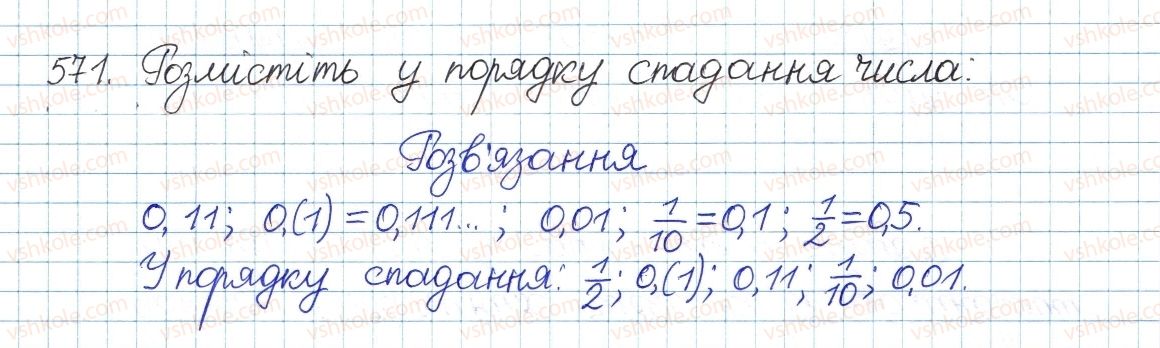 571. Розмістіть у порядку спадання числа:
Розв'язання
0,11; 0,(1) = 0,111...; 0,01; 1/10 = 0,1; 1/2 = 0,5.
У порядку спадання: 1/2; 0,(1); 0,11; 1/10; 0,01.
vshkole.com